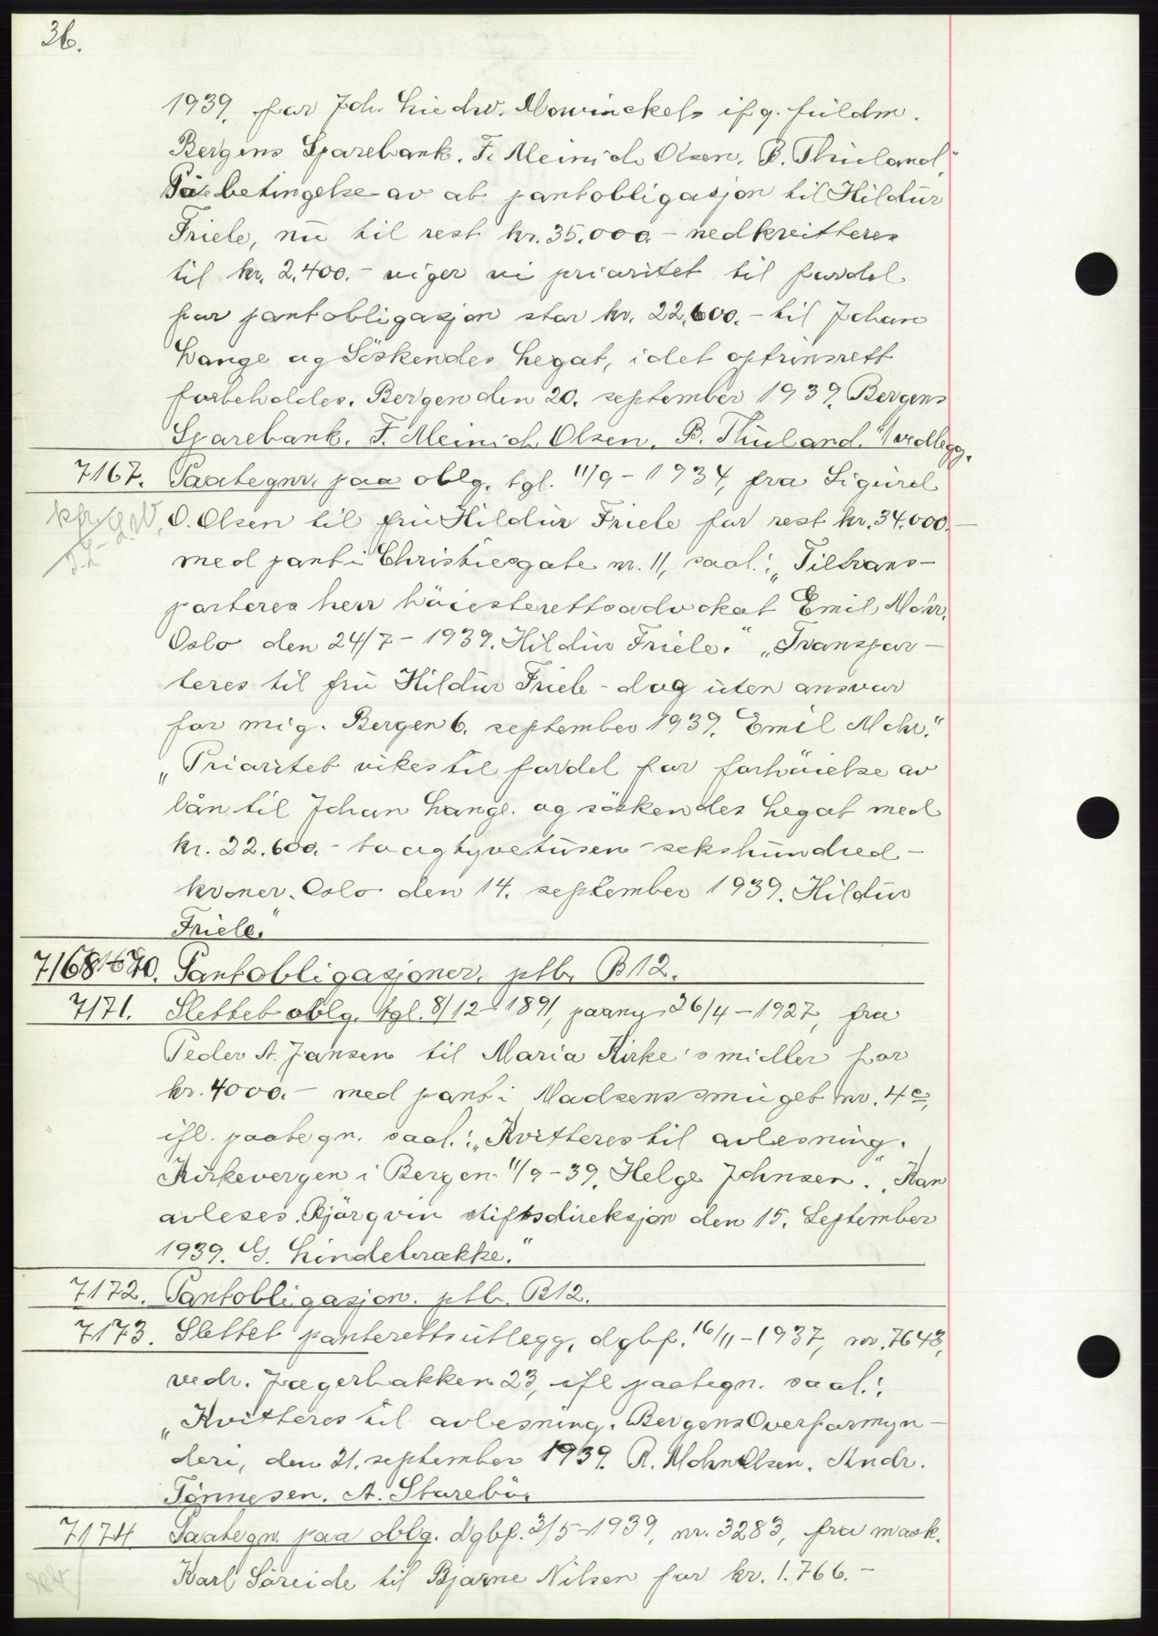 36.
1939. for Joh. Ludw. Mowinckels ifg. fuldm.
Bergens Sparebank. F. Meinich Olsen. B. Thuland."
"På betingelse av at pantobligasjon til Hildur
Friele, nu til rest kr. 35.000.- nedkvitteres
til kr. 2.400.- viger vi prioritet til fordel
for pantobligasjon stor kr. 22.600.- til Johan
Lange og Söskendes Legat, idet optrinsrett
forbeholdes. Bergen den 20. september 1939. Bergens
Sparebank. F. Meinich Olsen. B. Thuland." Vedlegg.
7167. Paategn. paa oblg. tgl. 11/9-1934, fra Sigurd
O. Olsen til fru Hildur Friele for rest kr. 34.000.-
med pant i Christiesgate nr. 11, saal.: "Tiltrans-
porteres herr höiesterettsadvokat Emil Mohr.
Oslo den 24/7-1939. Hildur Friele." "Transpor-
teres til fru Hildur Friele - dog uten ansvar
for mig. Bergen 6. september 1939. Emil Mohr."
"Prioritet vikes til fordel for forhöielse av
lån til Johan Lange. og söskendes Legat med
kr. 22.600.- toogtyvetusen-sekshundred-
kroner. Oslo den 14. september 1939. Hildur
Friele."
7168-70. Pantobligasjoner. ptb. B12.
7171. Slettet oblg. tgl. 8/12-1891, paany 26/4-1927, fra
Peder A. Jansen til Maria Kirke's midler for
kr. 4000.- med pant i Madsenssmuget nr. 4c,
ifl. paategn. saal.: "Kvitteres til avlesning.
Kirkevergen i Bergen 11/9-39. Helge Johnsen." "Kan
avleses. Björgvin stiftsdireksjon den 15. September
1939. G. Lindebrække."
7172. Pantobligasjon. ptb. B12.
7173. Slettet panterettsutlegg, dgbf. 16/11-1937, nr. 7643,
vedr. Jægerbakken 23, ifl paategn. saal.:
"Kvitteres til avlesning. Bergens Overformyn-
deri, den 21. september 1939. R. Mohn Olsen. Andr.
Tönnesen. A. Storebö.
7174. Paategn. paa oblg. dgbf. 3/5-1939, nr. 3283, fra mask.
Karl Söreide til Bjarne Nilsen for kr. 1.766.-